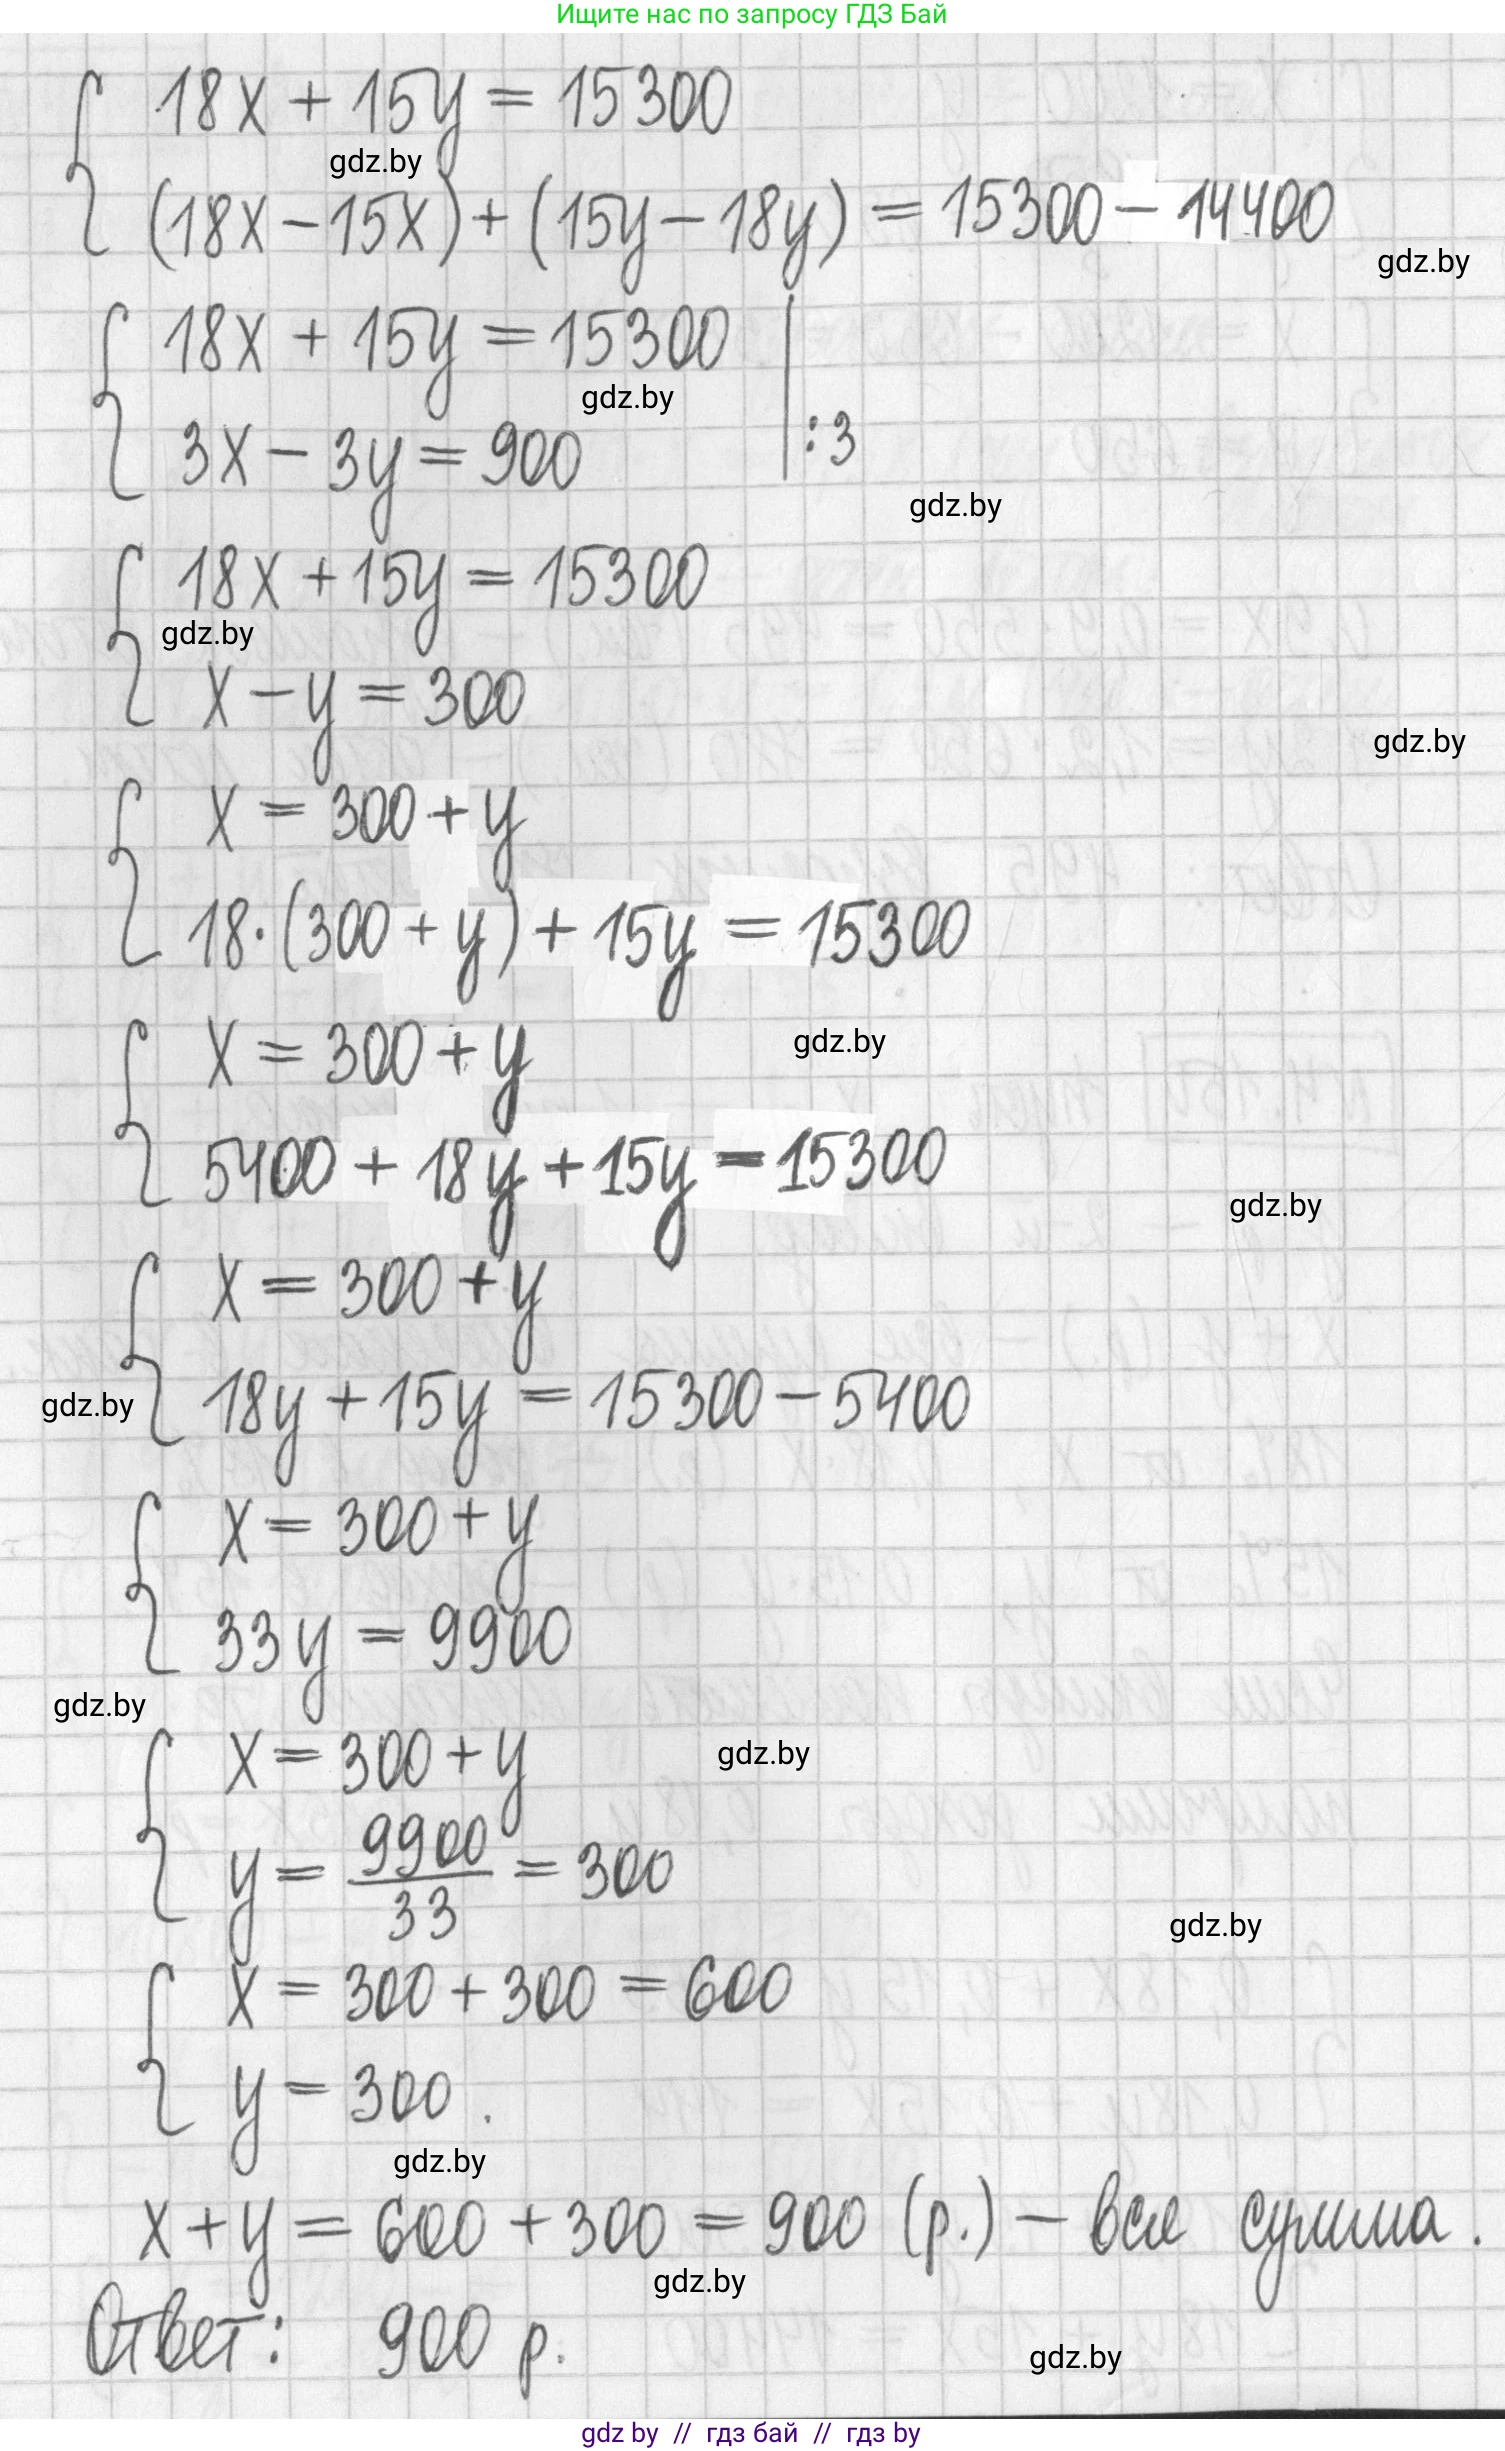 Ищите нас по запросу ГДЗ Бай
18x + 15y = 15300
gdz.by
(18x - 15x) + (15y - 18y) = 15300 - 14400
gdz.by
18x + 15y = 15300
gdz.by
3x - 3y = 900 | :3
gdz.by
18x + 15y = 15300
gdz.by
x - y = 300
gdz.by
x = 300 + y
18·(300 + y) + 15y = 15300
gdz.by
x = 300 + y
5400 + 18y + 15y = 15300
gdz.by
x = 300 + y
18y + 15y = 15300 - 5400
gdz.by
x = 300 + y
33y = 9900
gdz.by
x = 300 + y
gdz.by
y = 9900/33 = 300
gdz.by
x = 300 + 300 = 600
y = 300.
gdz.by
x + y = 600 + 300 = 900 (р.) - вся сумма.
gdz.by
Ответ: 900 р.
gdz.by
gdz by // гдз бай // гдз by